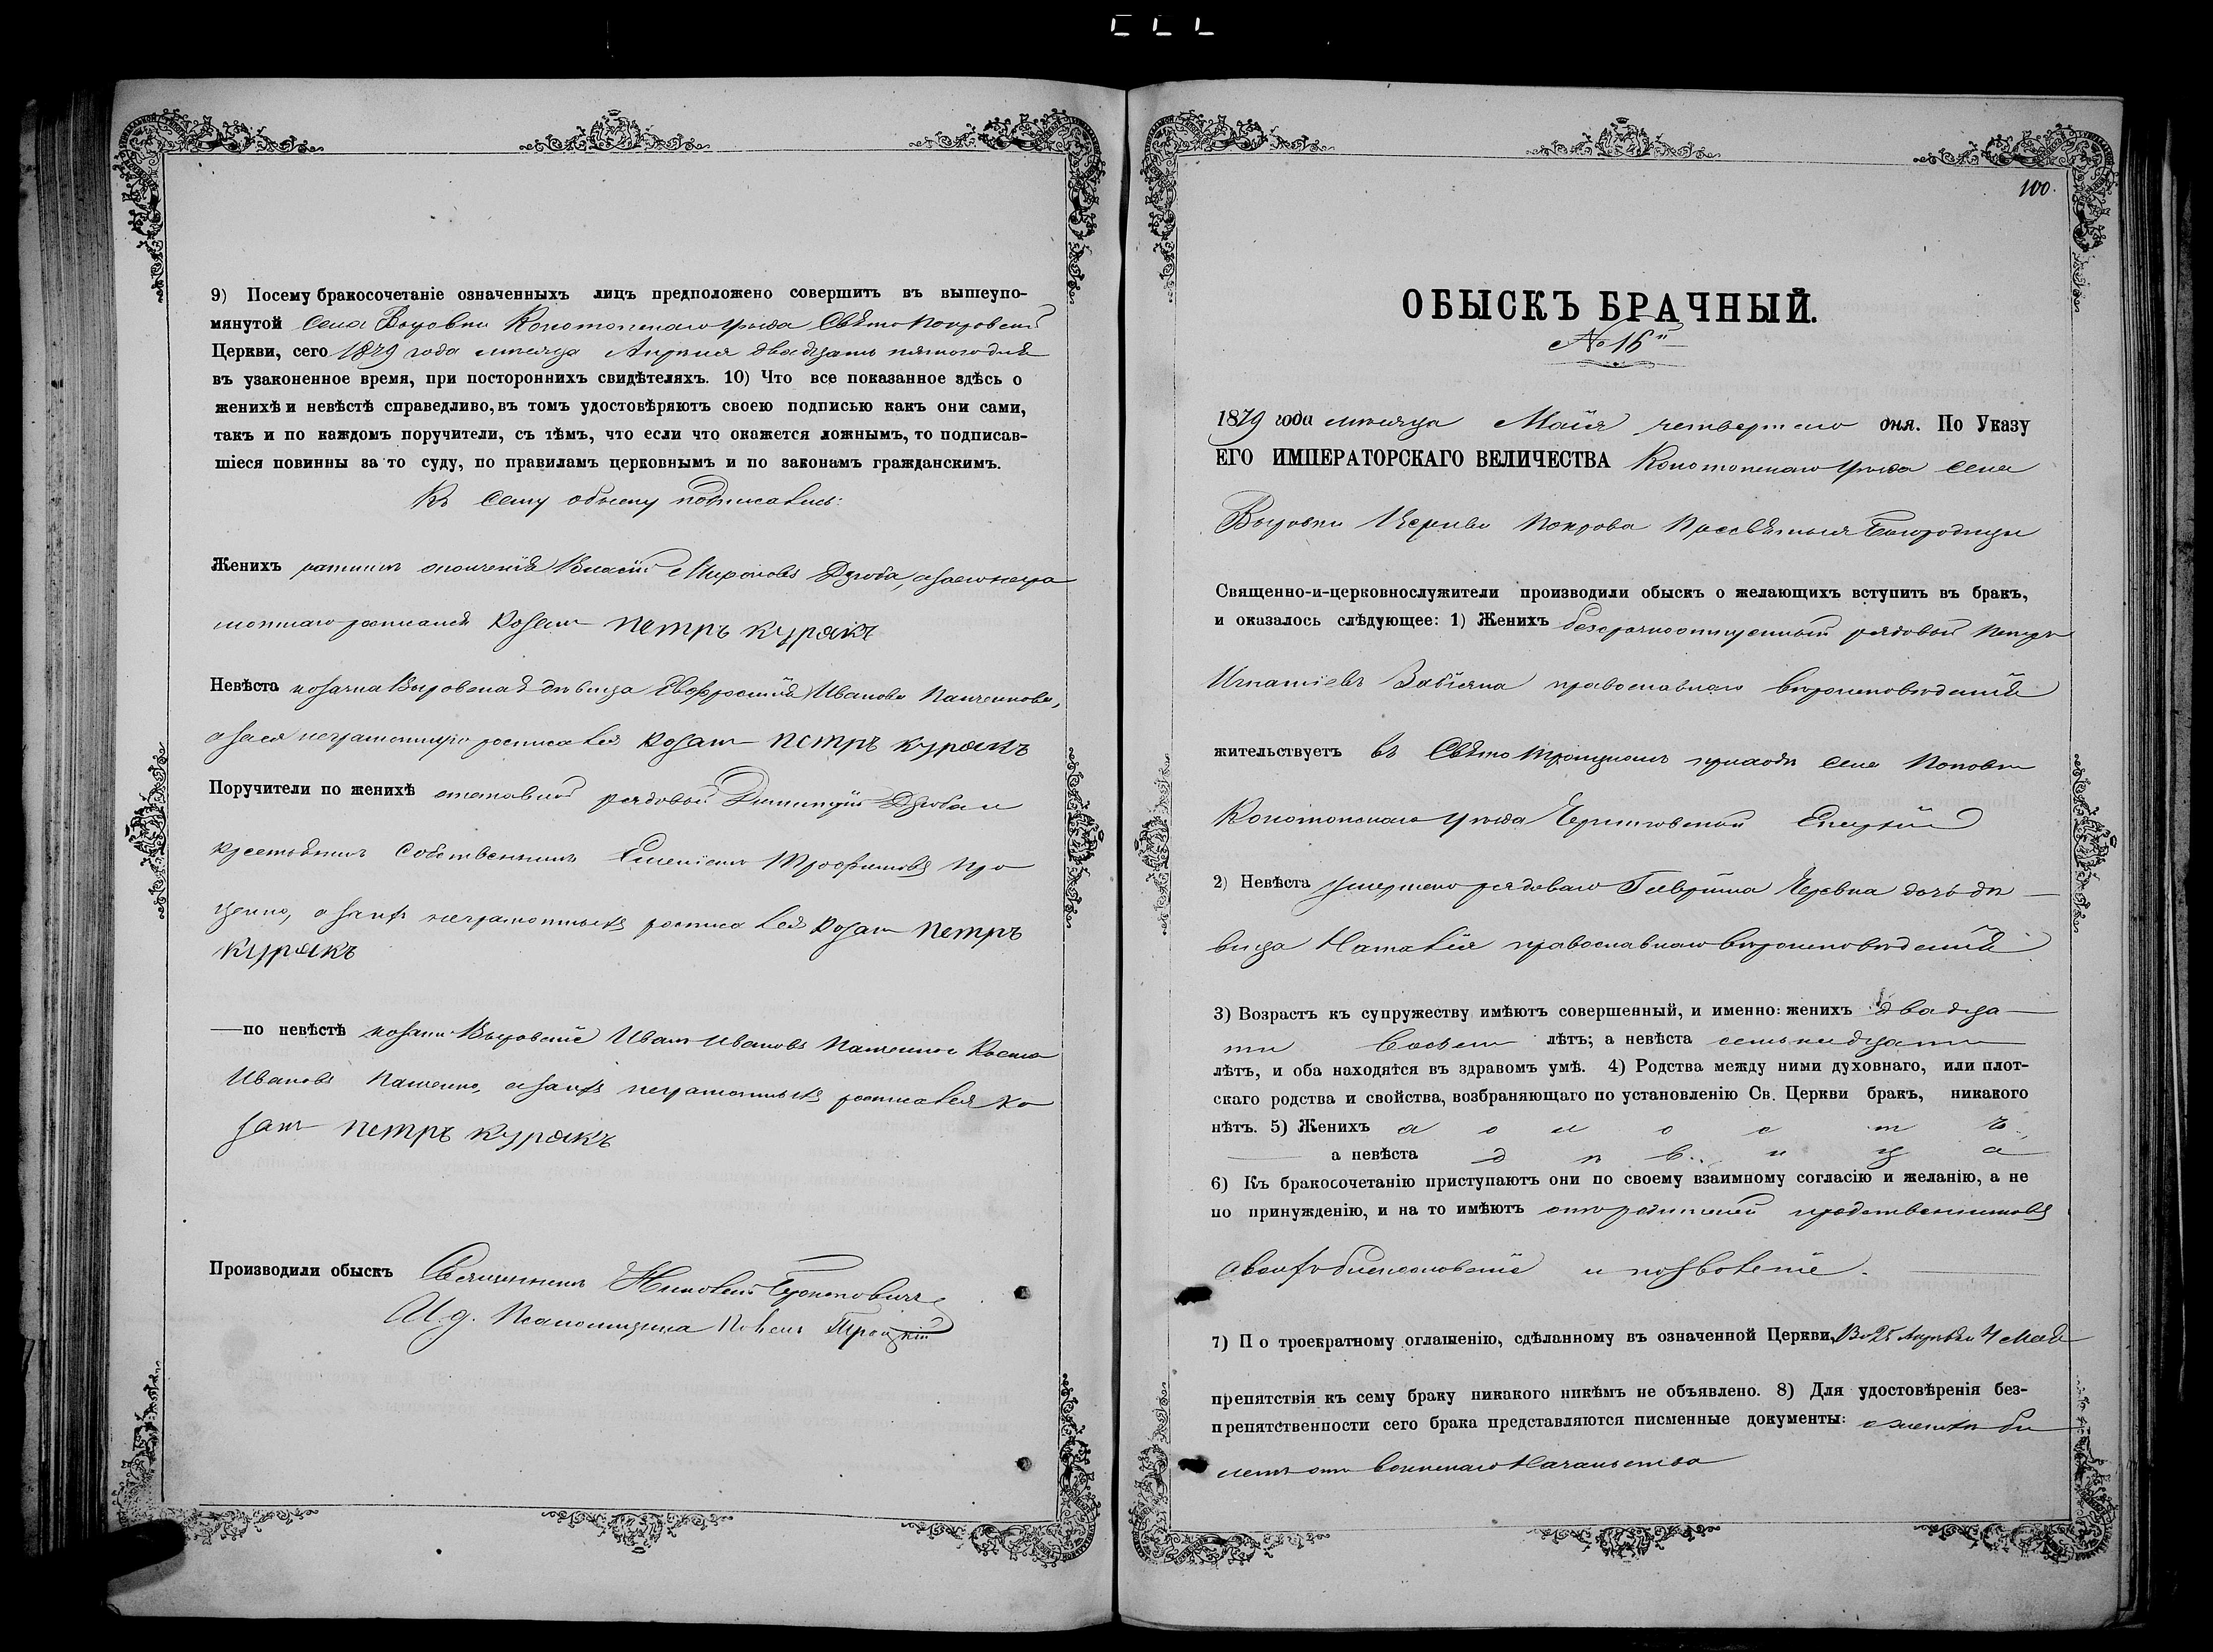 9) Посему бракосочетаніе означенныхъ лицъ предположено совершить въ вышеупо-
мянутой села Выровки Конотопскаго уѣзда Свѣто Покровской
Церкви, сего 1879 года мѣсяца Апрѣля двадцать пятого дня
въ узаконенное время, при постороннихъ свидѣтеляхъ. 10) Что все показанное здѣсь о
женихѣ и невѣстѣ справедливо, въ томъ удостовѣряютъ своею подписью какъ они сами,
такъ и по каждомъ поручители, съ тѣмъ, что если что окажется ложнымъ, то подписав-
шіеся повинны за то суду, по правиламъ церковнымъ и по законамъ гражданскимъ.
Къ сему обыску подписались:
Женихъ ратникъ ополченія Власій Мироновъ Дзюба, а за его негра
мотнаго росписался козакъ Петръ Курякъ
Невѣста козачка Выровская дѣвица Евфросинія Иванова Пащенкова,
а за ея неграмотную росписался козакъ Петръ Курякъ
Поручители по женихѣ отставной рядовый Димитрій Дзюба и
крестьянинъ собственникъ Трофимовъ Про
ценко, а за ихъ неграмотныхъ росписался козакъ Петръ
Курякъ
—по невѣстѣ козаки Выровскіе Иванъ Ивановъ Пащенко
Ивановъ Пащенко, а за ихъ неграмотныхъ росписался ко
закъ Петръ Курякъ
Производили обыскъ Священникъ
И. д. Псаломщика Троцкій
100.
ОБЫСКЪ БРАЧНЫЙ.
№ 16й
1879 года мѣсяца Маія четвертаго дня. По Указу
ЕГО ИМПЕРАТОРСКАГО ВЕЛИЧЕСТВА Конотопскаго уѣзда села
Выровки Церкви Покрова Пресвѣтыя Богородицы
Священно-и-церковнослужители производили обыскъ о желающихъ вступить въ бракъ,
и оказалось слѣдующее: 1) Женихъ безсрочноотпускный рядовый Петръ
Игнатіевъ Забіяка православнаго вѣроисповѣданія
жительствуетъ въ Свѣто Троицкомъ приходѣ села Поповки
Конотопскаго уѣзда Черниговской Епархіи
2) Невѣста умершего рядоваго Гавріила дочь дѣ
вица Наталія православнаго вѣроисповѣданія
3) Возрастъ къ супружеству имѣютъ совершенный, и именно: женихъ двадца
ти восьми лѣтъ; а невѣста семьнадцати
лѣтъ, и оба находятся въ здравомъ умѣ. 4) Родства между ними духовнаго, или плот-
скаго родства и свойства, возбраняющаго по установленію Св. Церкви бракъ, никакого
нѣтъ. 5) Женихъ холостъ
а невѣста дѣвица
6) Къ бракосочетанію приступаютъ они по своему взаимному согласію и желанію, а не
по принужденію, и на то имѣютъ отъ родителей и родственниковъ
своихъ благословеніе и позволеніе.
7) По троекратному оглашенію, сдѣланному въ означенной Церкви,
препятствія къ сему браку никакого никѣмъ не объявлено. 8) Для удостовѣренія без-
препятственности сего брака представляются писменные документы: о женихѣ би
летъ отъ воинскаго Начальства